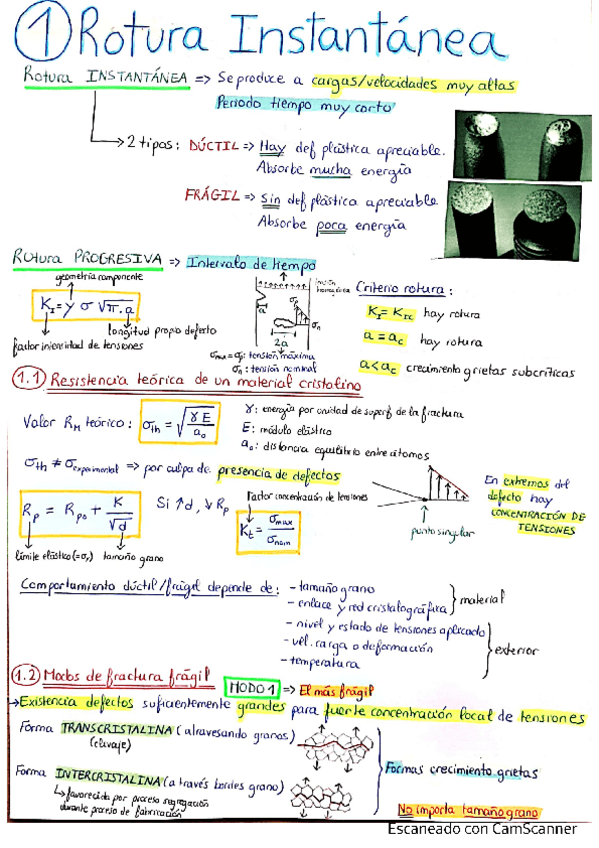 ① Rotura Instantánea
Rotura INSTANTÁNEA => Se produce a cargas/velocidades muy altas
Periodo tiempo muy corto
2 tipos: DÚCTIL => Hay def plástica apreciable.
Absorbe mucha energía
FRÁGIL => Sin def plástica apreciable.
Absorbe poca energía
Rotura PROGRESIVA => Intervalo de tiempo
geometría componente
K_I = y σ √π.a
longitud propio defecto
factor intensidad de tensiones
tensión
σn
2a
σmax = σf: tensión máxima
σn: tensión nominal
Criterio rotura:
K_I = K_IC hay rotura
a = ac hay rotura
a < ac crecimiento grietas subcríticas
1.1 Resistencia teórica de un material cristalino
Valor RM teórico: σth = √(γ E / ao)
γ: energía por unidad de superf de la fractura
E: módulo elástico
ao: distancia equilibrio entre átomos
σth ≠ σexperimental => por culpa de presencia de defectos
Rp = Rpo + K/√d Si ↑d, ↓Rp
límite elástico (=σy) tamaño grano
Factor concentración de tensiones
Kt = σmax/σnom
punto singular
En extremos del
defecto hay
CONCENTRACIÓN DE
TENSIONES
Comportamiento dúctil/frágil depende de:
- tamaño grano
- enlace y red cristalográfica
material
- nivel y estado de tensiones aplicado
- vel. carga o deformación
- temperatura
exterior
1.2 Modos de fractura frágil
MODO 1 => El más frágil
→ Existencia defectos suficientemente grandes para fuerte concentración local de tensiones
Forma TRANSCRISTALINA (atravesando granos)
(clivaje)
Forma INTERCRISTALINA (a través bordes grano)
↳ favorecida por proceso segregación
durante proceso de fabricación
Formas crecimiento grietas
No importa tamaño grano
Escaneado con CamScanner